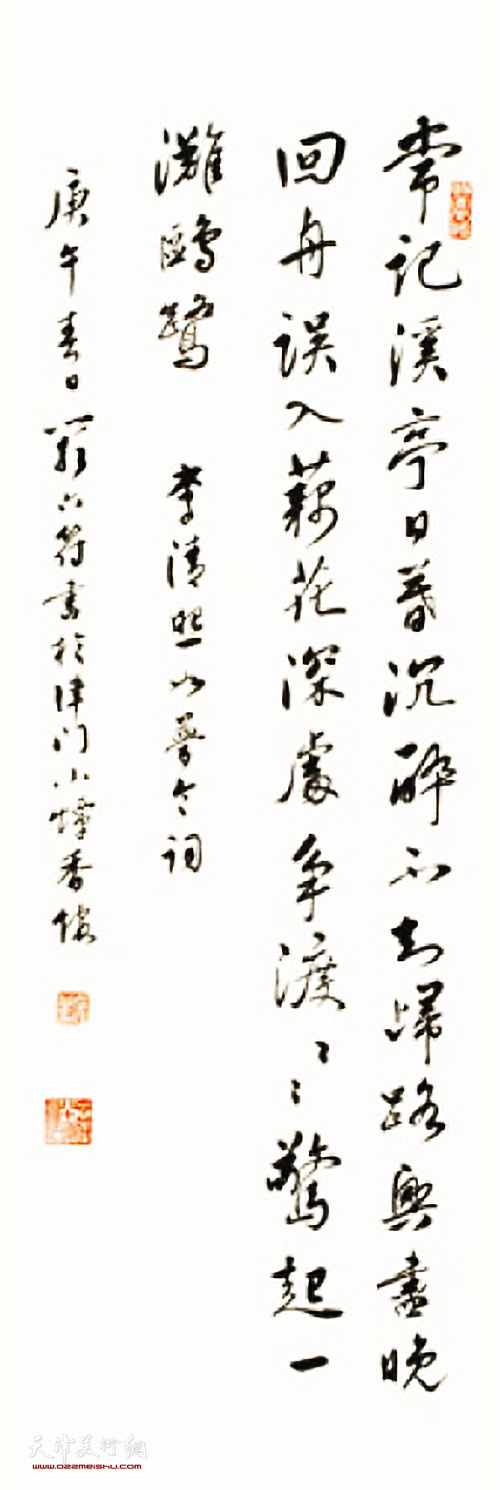 常记溪亭日暮沉醉不知歸路興盡晚
回舟误入藕花深處争渡〻〻驚起一
灘鷗鷺
李清照如夢令词
庚午春日嚴六符書於津门小香館
天津美术網
www.ozzmeishu.com